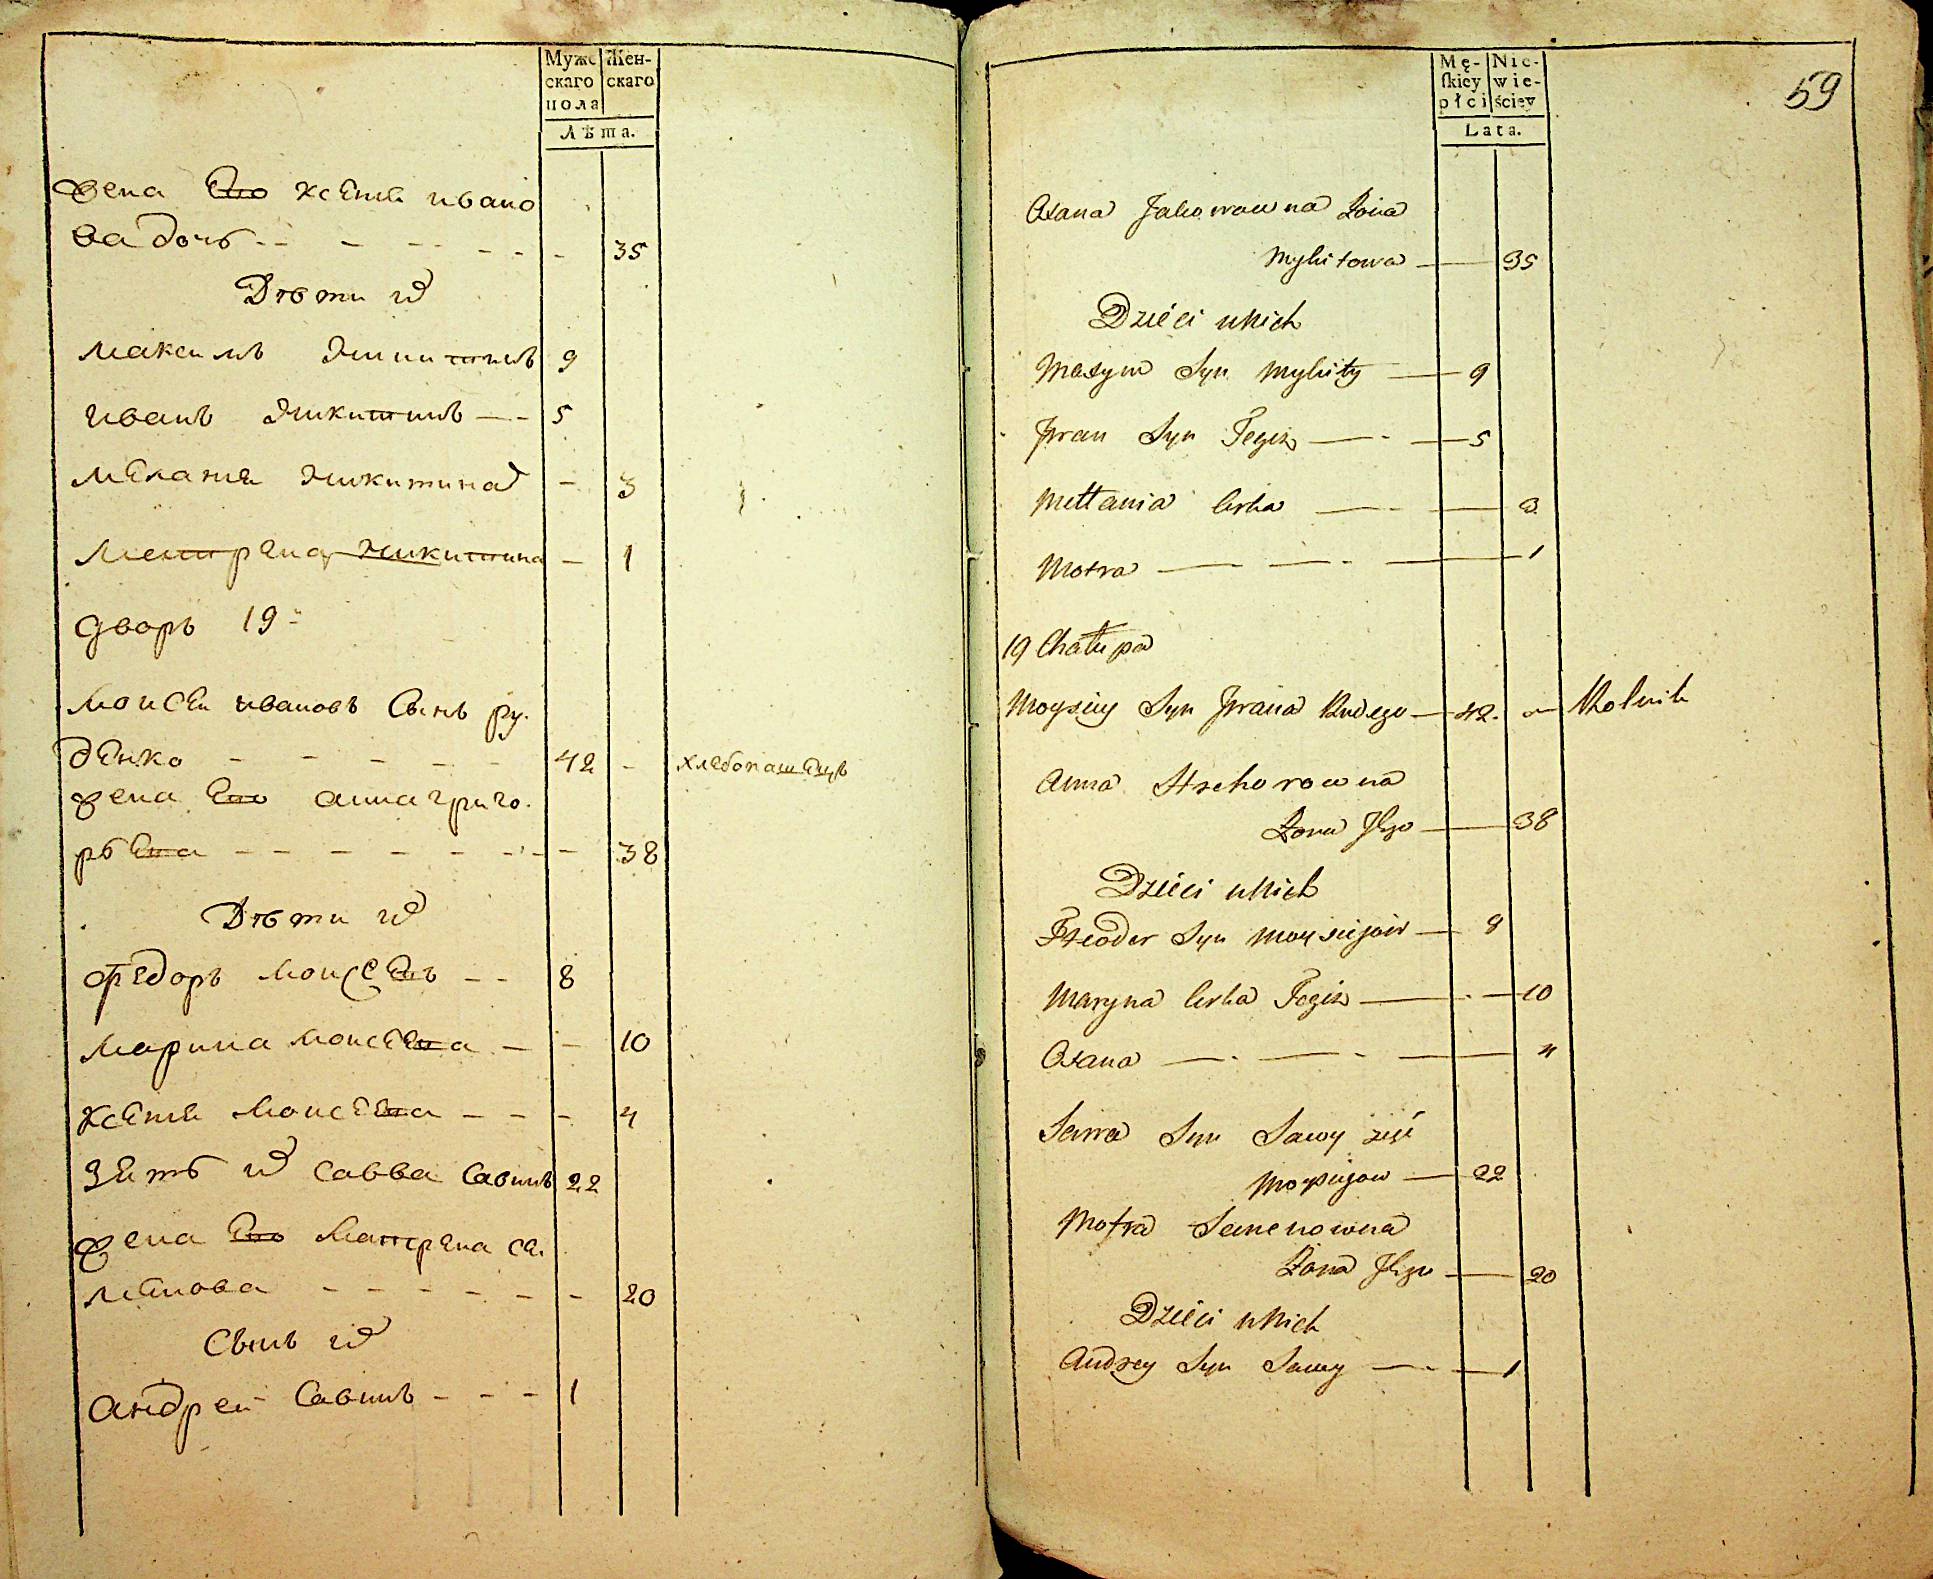 Мужс
скаго
пола
Жен-
скаго
Лѣта.
жена Его ксенія ивано
ва дочь 35
Дѣти их
максимъ Никитинъ 9
иванъ Никитинъ 5
меланія Никитина 3
мотрена Никитина 1
дворъ 19
моисей ивановъ Сынъ ру.
денко 42 хлебопашецъ
жена Его анна григо.
рьева 38
Дѣти их
федоръ моисеевъ 8
марина моисеева 10
ксенія моисеева 4
зять их савва савинъ 22
жена Его матрена се.
менова 20
Сынъ их
андрей Савинъ 1
59
Mę-
skiey
płci
Nie-
wie-
ściey
Lata.
Oxana Jakowowna Żona
Mykitowa 35
Dzieci u Nich
Maxym Syn Mykity 9
Jwan Syn Tegiż 5
Mełłania Corka 3
Motra 1
19 Chałupa
Moysiey Syn Jwana Rudego 42 Rolnik
Anna Hrehorowna
Żona Jego 38
Dzieci u Nich
Fteodor Syn Moysiejow 8
Maryna Corka Tegiż 10
Oxana 4
Sawa Syn Sawy zięć
Moysiejow 22
Motra Semenowna
Żona Jego 20
Dzieci u Nich
Andrey Syn Sawy 1